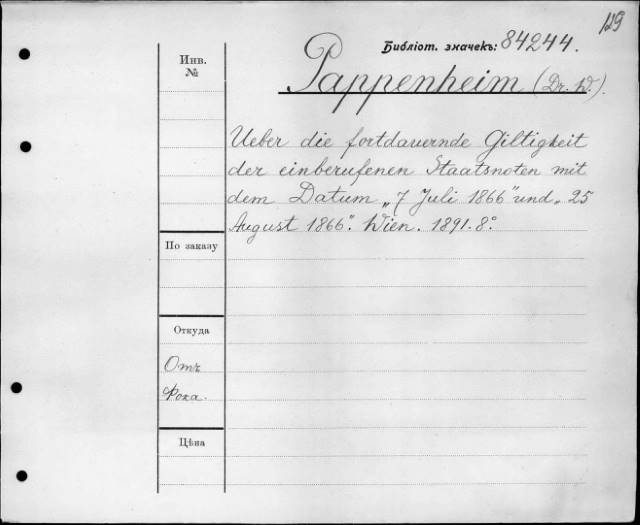 129
Библіот. значекъ: 84244.
Инв.
№
Pappenheim (Dr. W.).
Ueber die fortdauernde Giltigkeit
der einberufenen Staatsnoten mit
dem Datum „7 Juli 1866“ und „25
August 1866“. Wien. 1891. 8°
По заказу
Откуда
Отъ
Фока.
Цѣна